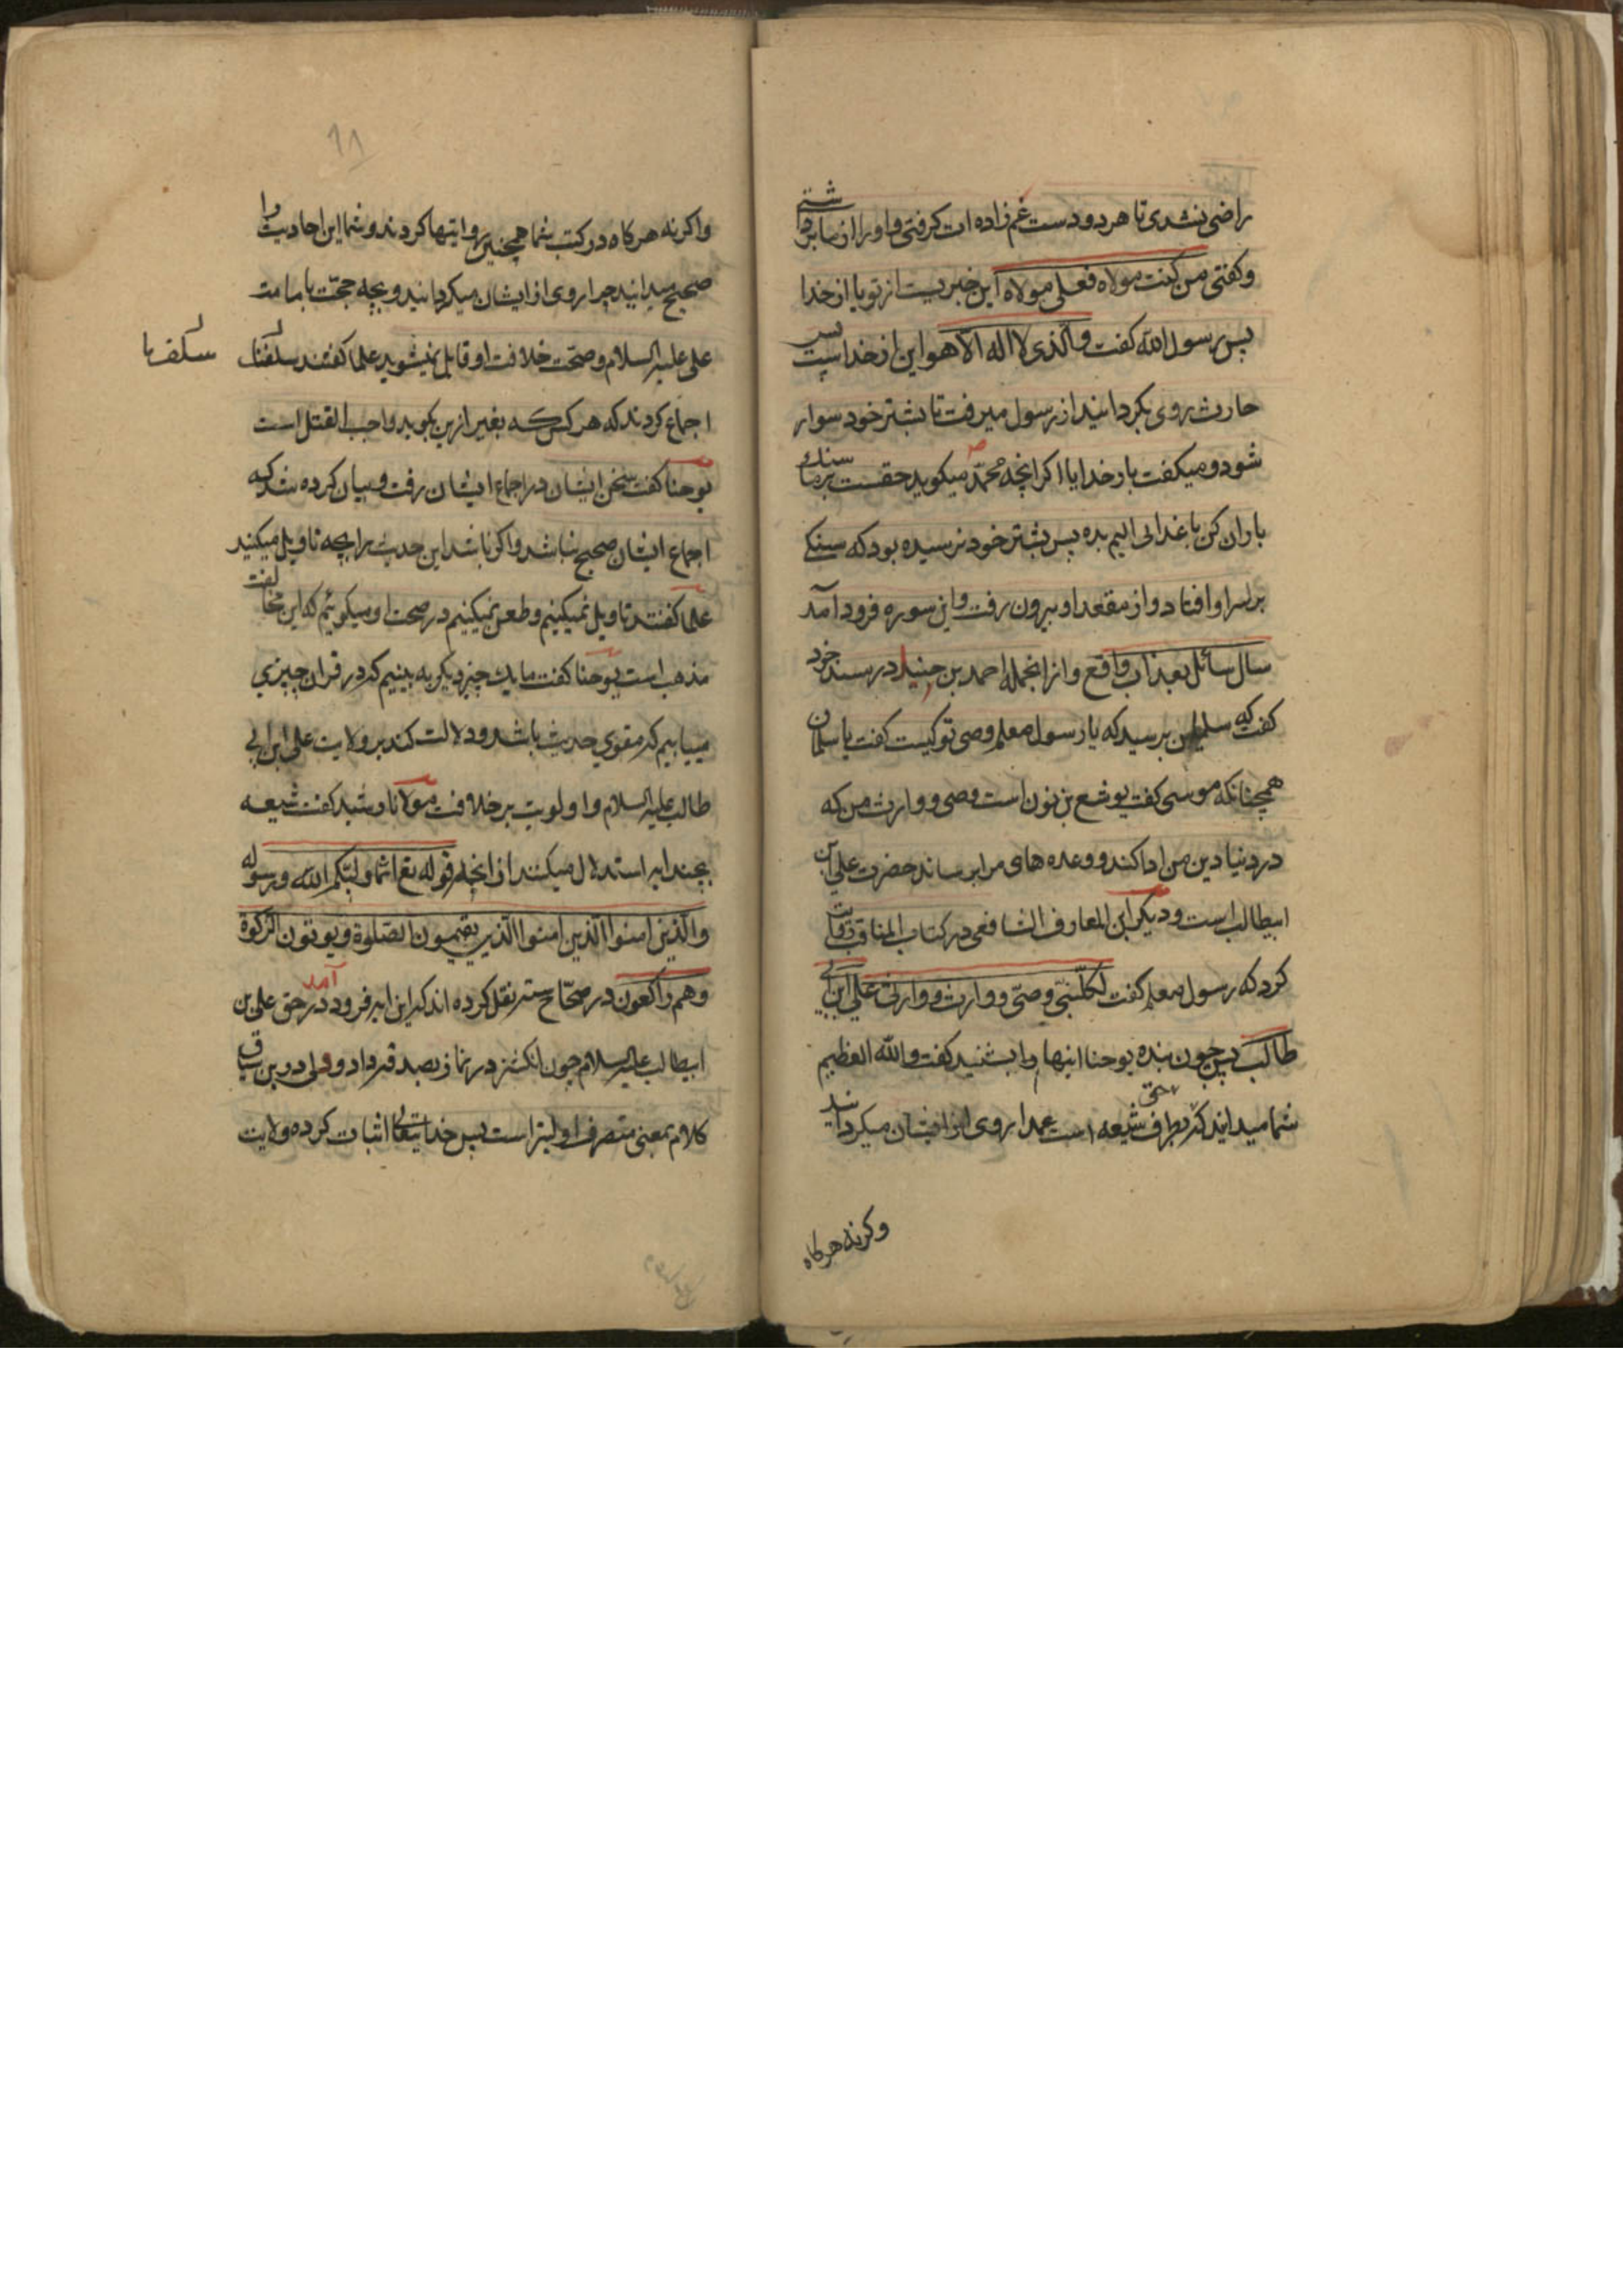 راضی نشدی تا هر دو دست عم زاده ات کرفتی و او را از ما برداشتی
و کفتی من کنت مولاه فعلی مولاه این خبریست از تو یا از خدا
پس رسول الله کفت والذی لا اله الا هو این از خداست پس
حارث روی بکردانید از رسول میرفت تا بشتر خود سوار
شود و میکفت بار خدایا اکر انچه محمد میکوید حقست بر ما سنک
باران کن یا عذابی الیم بده پس بشتر خود نرسیده بود که سنکی
بر سر او افتاد و از مقعد او بیرون رفت و این سوره فرود آمد
سال سائل بعذاب واقع و از انجمله احمد بن حنبل در مسند خود
کفت که سلمان پرسید که یا رسول صعلم وصی تو کیست کفت یا سلمان
همچنانکه موسی کفت یوشع بن نون است وصی و وارث من که
در دنیا دین من ادا کند و وعده های مرا برساند حضرت علی بن
ابیطالب است و دیکر ابن المعارف الشافعی در کتاب المناقب روایت
کرد که رسول صعلم کفت لکل نبی وصی و وارث و وارثی علی ابن ابی
طالب پس چون بنده یوحنا اینها را بشنید کفت والله العظیم
شما میدانید که حق بطرف شیعه است عمدا روی از ایشان میکردانید
وکرنه هرکاه
٦٨
واکرنه هرکاه در کتب شما همچنین روایتها کردند و شما این احادیث را
صحیح میدانید چرا روی از ایشان میکردانید و بچه حجت بامامت
علی علیه السلام و صحت خلافت او قایل نمیشوید علما کفتند سلفنا
سلف ما
اجماع کردند که هر کس که بغیر ازین بکوید واجب القتل است
یوحنا کفت سخن ایشان در اجماع ایشان رفت و بیان کرده شد که
اجماع ایشان صحیح نباشد و اکر باشد این حدیث را بچه تاویل میکنید
علما کفتند تاویل نمیکنیم و طعن نمیکنیم در صحت او میکوئیم که این مخالفت
مذهب است یوحنا کفت ما یک چیز دیکر به بینیم که در قران چیزی
میابیم که مقوی حدیث باشد و دلالت کند بر ولایت علی ابن ابی
طالب علیه السلام و اولویت بر خلافت مولانا رشید کفت شیعه
بچند ایه استدلال میکنند از انجمله قوله تع انما ولیکم الله و رسوله
والذین امنوا الذین امنوا الذین یقیمون الصلوة و یوتون الزکوة
و هم راکعون در صحاح سته نقل کرده اند که این ایه فرود آمد در حق علی بن
ابیطالب علیه السلام چون انکشتر در نماز بصدقه داد و ولی درین سیاق
کلام بمعنی متصرف اولیتر است پس خدایتعالی اثبات کرده ولایت